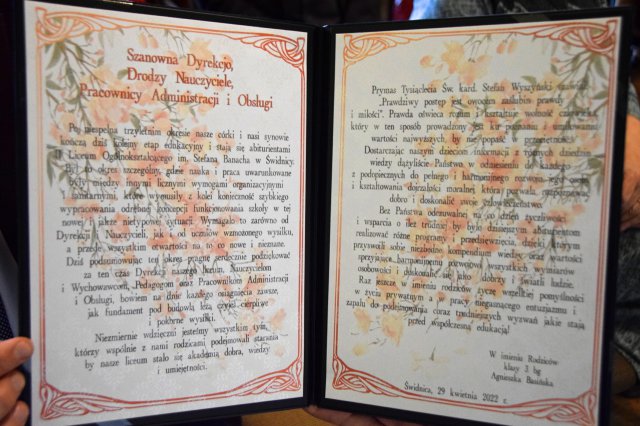 Szanowna Dyrekcjo,
Drodzy Nauczyciele,
Pracownicy Administracji i Obsługi
Po niespełna trzyletnim okresie nasze córki i nasi synowie
kończą dziś kolejny etap edukacyjny i stają się abiturientami
II Liceum Ogólnokształcącego im. Stefana Banacha w Świdnicy.
Był to okres szczególny, gdzie nauka i praca uwarunkowane
były między innymi licznymi wymogami organizacyjnymi
i sanitarnymi, które wymusiły z kolei konieczność szybkiego
wypracowania odrębnej koncepcji funkcjonowania szkoły w tej
nowej i jakże nietypowej sytuacji. Wymagało to zarówno od
Dyrekcji i Nauczycieli, jak i od uczniów wzmożonego wysiłku,
a przede wszystkim otwartości na to co nowe i nieznane.
Dziś podsumowując ten okres pragnę serdecznie podziękować
za ten czas Dyrekcji naszego liceum, Nauczycielom
i Wychowawcom, Pedagogom oraz Pracownikom Administracji
i Obsługi, bowiem na dnie każdego osiągnięcia zawsze,
jak fundament pod budowlą leżą czyjeś cierpliwe
i pokorne wysiłki.
Niezmiernie wdzięczni jesteśmy wszystkim tym,
którzy wspólnie z nami rodzicami podejmowali starania
by nasze liceum stało się akademią dobra, wiedzy
i umiejętności.
Prymas Tysiąclecia Św. kard. Stefan Wyszyński mawiał:
„Prawdziwy postęp jest owocem zaślubin prawdy
i miłości". Prawda oświeca rozum i kształtuje wolność człowieka,
który w ten sposób prowadzony jest ku poznaniu i umiłowaniu
wartości najwyższych, by nie popaść w przeciętność.
Dostarczając naszym dzieciom informacji z różnych dziedzin
wiedzy dążyliście Państwo, w odniesieniu do każdego
z podopiecznych do pełnego i harmonijnego rozwoju jego osoby
i kształtowania dojrzałości moralnej, która pozwala, rozpoznawać
dobro i doskonalić swoje człowieczeństwo.
Bez Państwa odczuwalnej na co dzień życzliwości
i wsparcia o ileż trudniej by było dzisiejszym absolwentom
realizować różne programy i przedsięwzięcia, dzięki którym
przyswoili sobie niezbędne kompendium wiedzy oraz wartości
sprzyjające harmonijnemu rozwojowi wszystkich wymiarów
osobowości i doskonalić się jako dobrzy i światli ludzie.
Raz jeszcze w imieniu rodziców życzę wszelkiej pomyślności
w życiu prywatnym a w pracy niegasnącego entuzjazmu i
zapału do podejmowania coraz trudniejszych wyzwań jakie stają
przed współczesną edukacją!
W imieniu Rodziców
klasy 3 bg
Agnieszka Basińska
Świdnica, 29 kwietnia 2022 r.